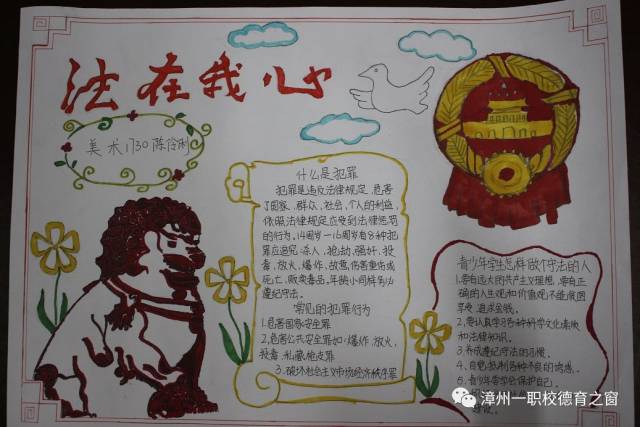 法在我心
美术1730 陈伶俐
什么是犯罪
犯罪是违反法律规定,危害
了国家、群众、社会、个人的利益,
依照法律规定应受到法律惩罚
的行为。14周岁一16周岁有8种犯
罪应避免:杀人、抢劫、强奸、投
毒、放火、爆炸、故意伤害重伤或
死亡、贩卖毒品,年龄小同样要
遵纪守法。
常见的犯罪行为
1.危害国家安全罪
2.危害公共安全罪如:爆炸,放火,
投毒、私藏枪支罪
3、破坏社会主义市场经济秩序罪
青少年学生怎样做个守法的人
1.要有远大的共产主义理想,要有正
确的人生观和价值观不能贪图
享受 追求金钱。
2.要认真学习各种科学文化知识
和法律知识。
3.养成遵纪守法的习惯。
4.自觉抵制各种不良的诱惑。
5.青少年要学会保护自己
漳州一职校德育之窗